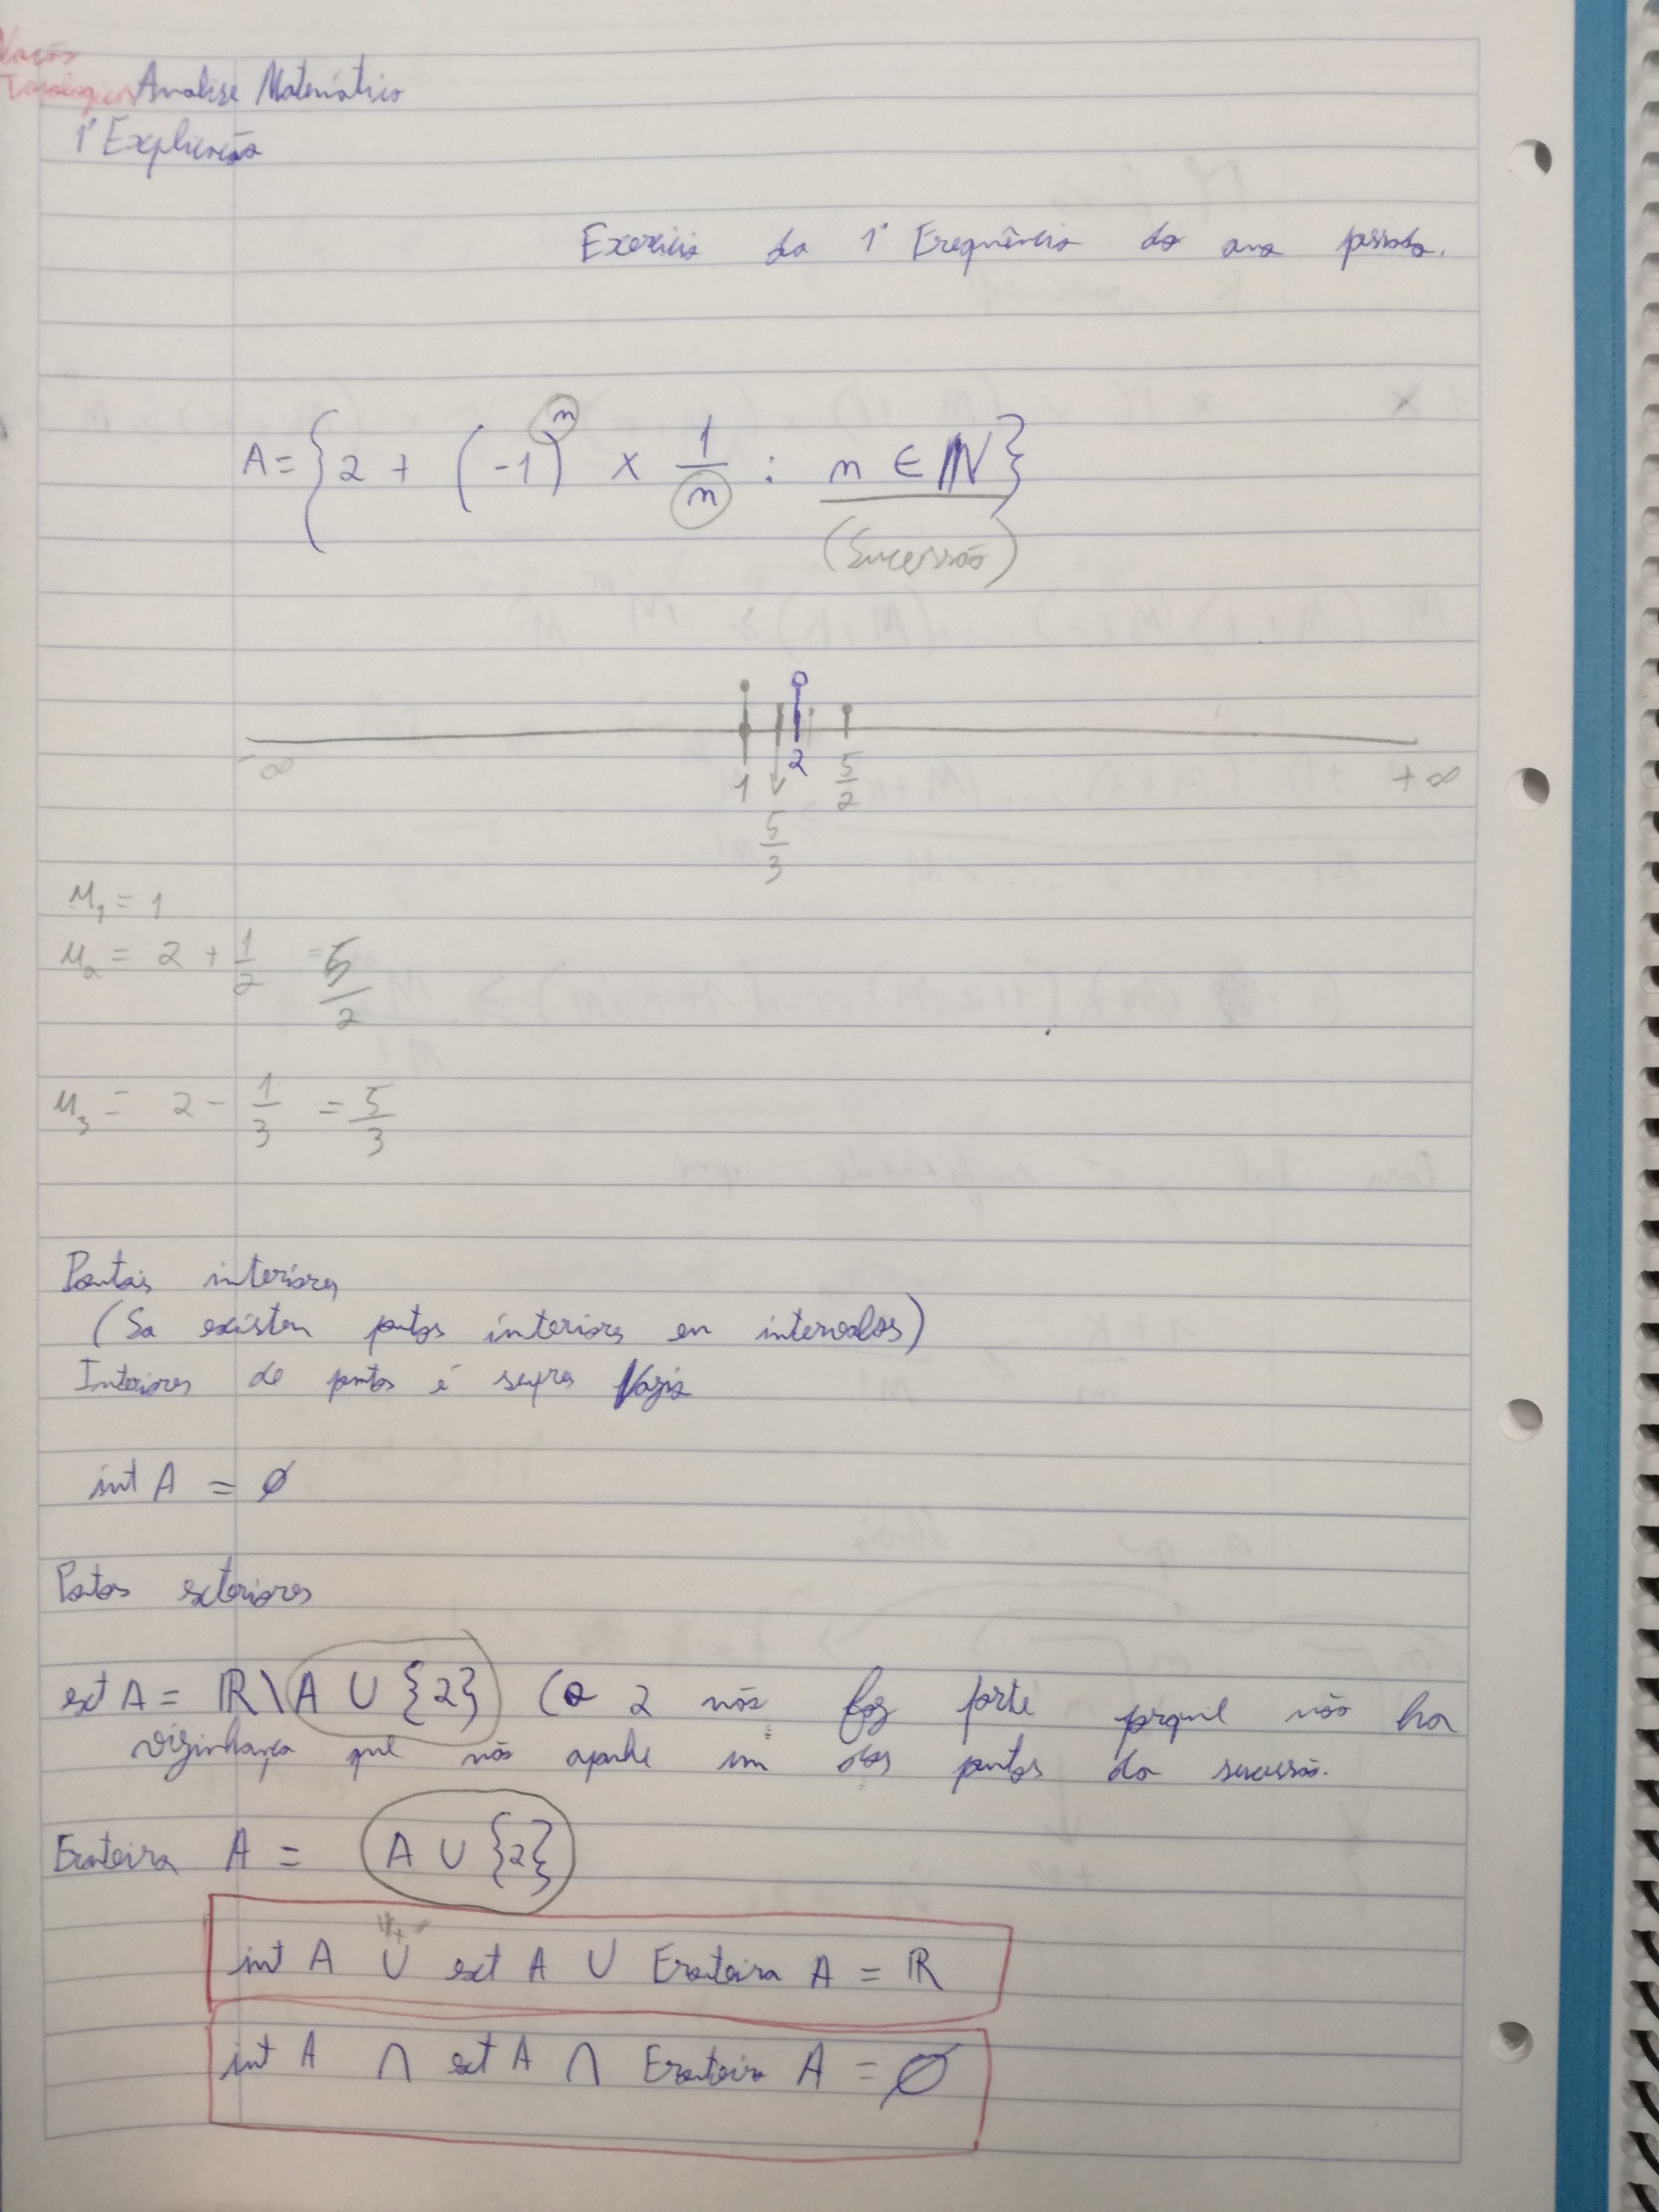 Noções
Topológicas Analise Matemática
1ª Explicação
Exercício da 1ª Frequência do ano passado.
A = {2 + (-1)^n × 1/n : n ∈ ℕ}
(Sucessão)
-∞ 1 5/3 2 5/2 +∞
u₁ = 1
u₂ = 2 + 1/2 = 5/2
u₃ = 2 - 1/3 = 5/3
Pontos interiores
(So existem pontos interiores em intervalos)
Interiores de pontos é sempre Vazio
int A = ∅
Pontos exteriores
ext A = ℝ \ A ∪ {2} (o 2 não faz parte porque não ha
vizinhança que não apanhe um dos pontos da sucessão.
Fronteira A = A ∪ {2}
int A ∪ ext A ∪ Fronteira A = ℝ
int A ∩ ext A ∩ Fronteira A = ∅